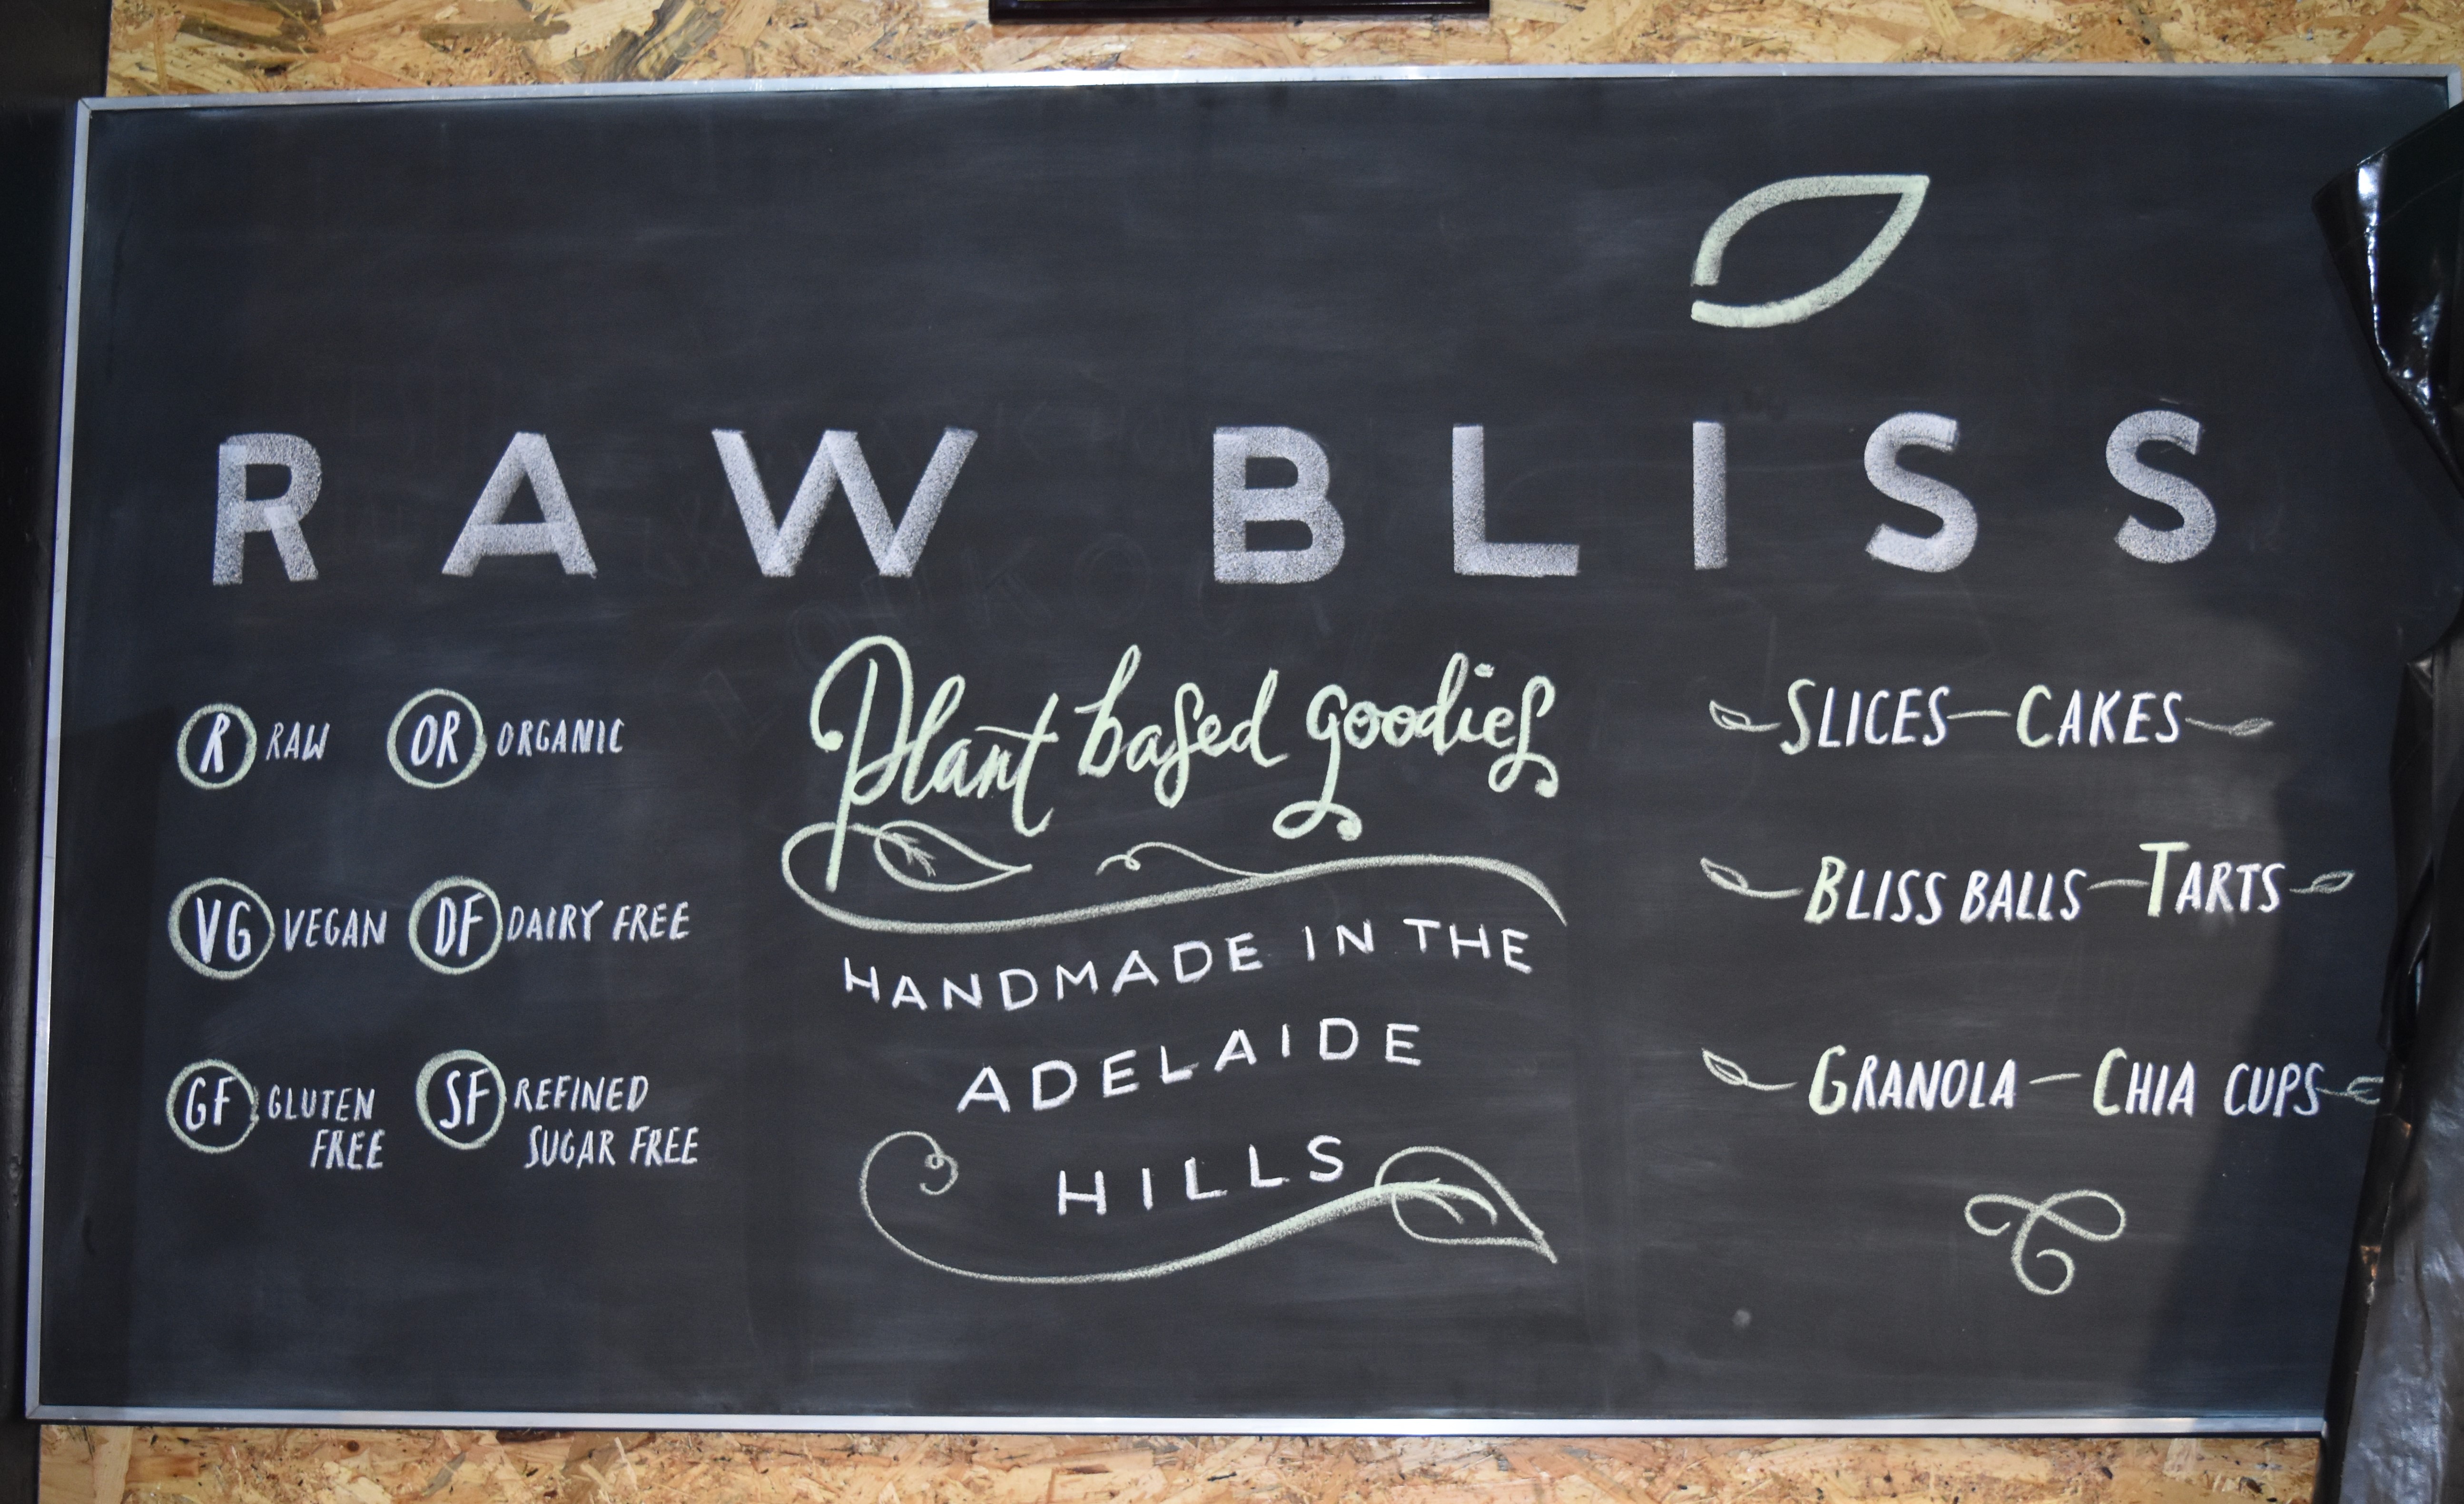 RAW BLISS
R RAW OR ORGANIC
VG VEGAN DF DAIRY FREE
GF GLUTEN FREE SF REFINED SUGAR FREE
Plant based goodies
HANDMADE IN THE
ADELAIDE
HILLS
SLICES—CAKES
BLISS BALLS—TARTS
GRANOLA—CHIA CUPS